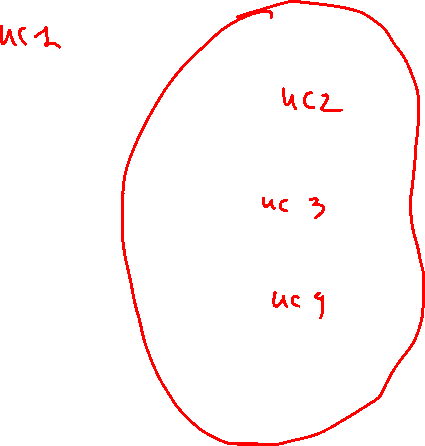 uc1
uc2
uc 3
uc 9